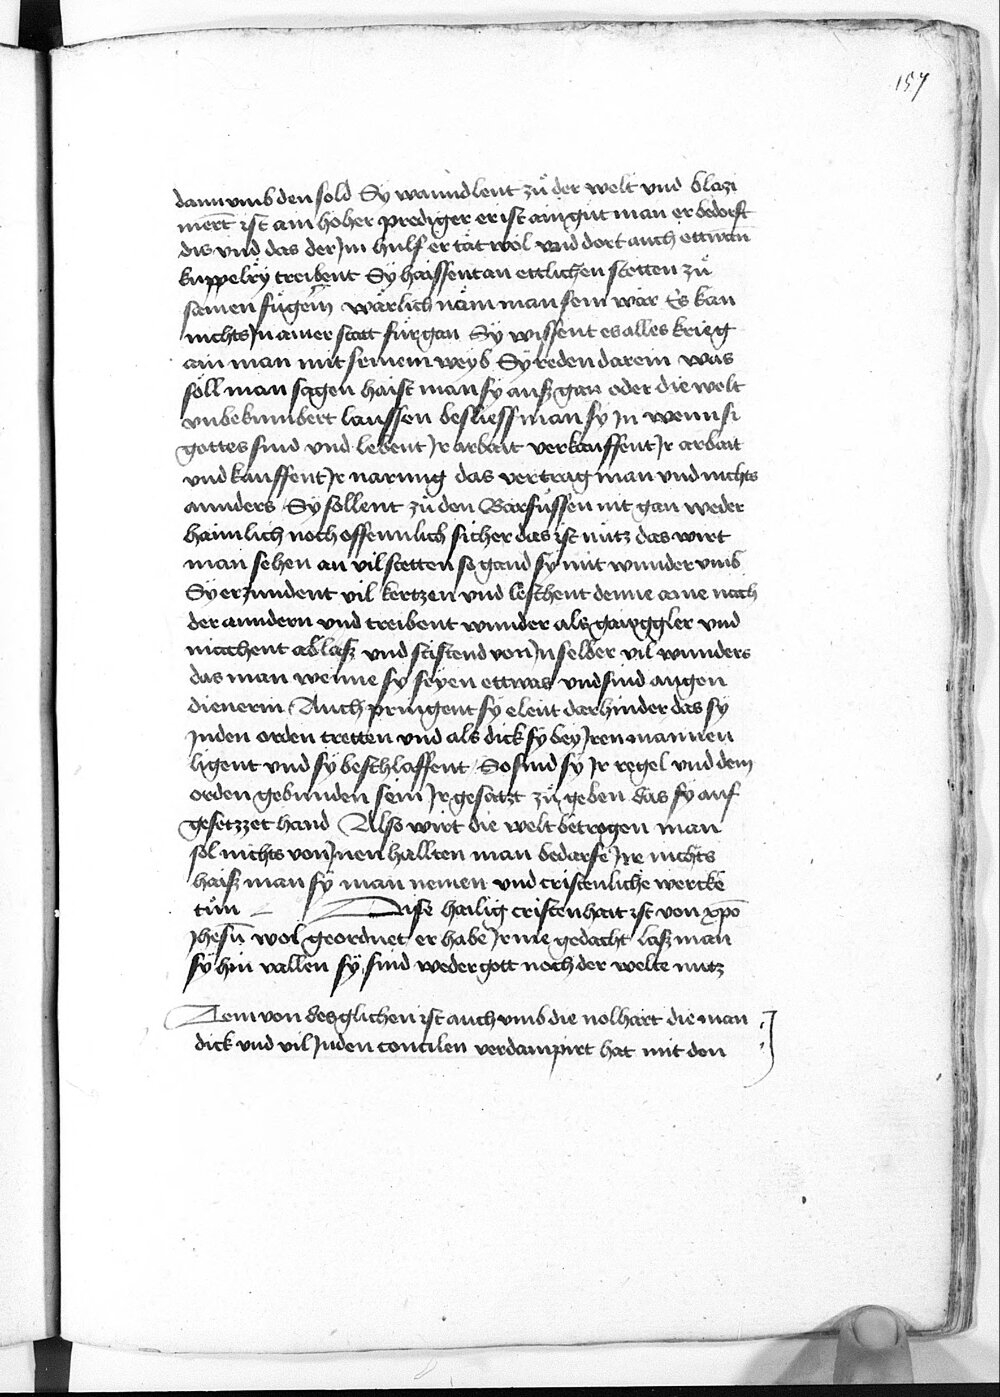 157
dann umb den sold Sy wanndlent zů der welt und blazi
niert ist ain hoher prediger er ist ain gůt man er bedorft
dis und das der Im hulf er tät wol und dort auch ettwan
kuppelry treibent Sy haissent an ettlichen stetten zů
samen fügerin wärlich näm man sein war Es kan
nichts In ainer statt fürgan Sy wissent es alles krieg
ain man mit seinem weyb Sy reden darein was
söll man sagen haist man sy ausz gan oder die welt
unbekumbert laussen besliess man sy In wenn si
gottes sind und lebent Ir arbait verkauffent Ir arbait
und kauffent Ir narung das vertrag man und nichts
annders Sy sollent zů den Barfůssen nit gan weder
haimlich noch offennlich sicher das ist nütz das wirt
man sehen an vil stetten so gand sy mit wunder umb
Sy erzundent vil kertzen und leschent denne aine nach
der anndern und treibent wunder als gauggler und
machent ablasz und stiftend von In selber vil wunders
das man wenne sy seyen ettwas und sind augen
dienerin Auch pringent sy eleut darhinder das sy
Inden orden tretten und als dick sy bey Iren mannen
ligent und sy beschlaffent So sind sy Ir regel und dem
orden gebunden sein Ir gesatzt zů geben das sy auf
gesetzzet hand Also wirt die welt betrogen man
sol nichts von Inen hallten man bedarfe Ire nichts
haisz man sy man nemen und cristenliche wercke
tůn Dise hailig cristenhait ist von xpo
Jhesu wol geordnet er habe Ir nie gedacht lasz man
sy hin vallen sy sind weder gott noch der welte nutz
Item von desglichen ist auch umb die nolhart die man
dick und vil Inden concilen verdampnirt hat mit den